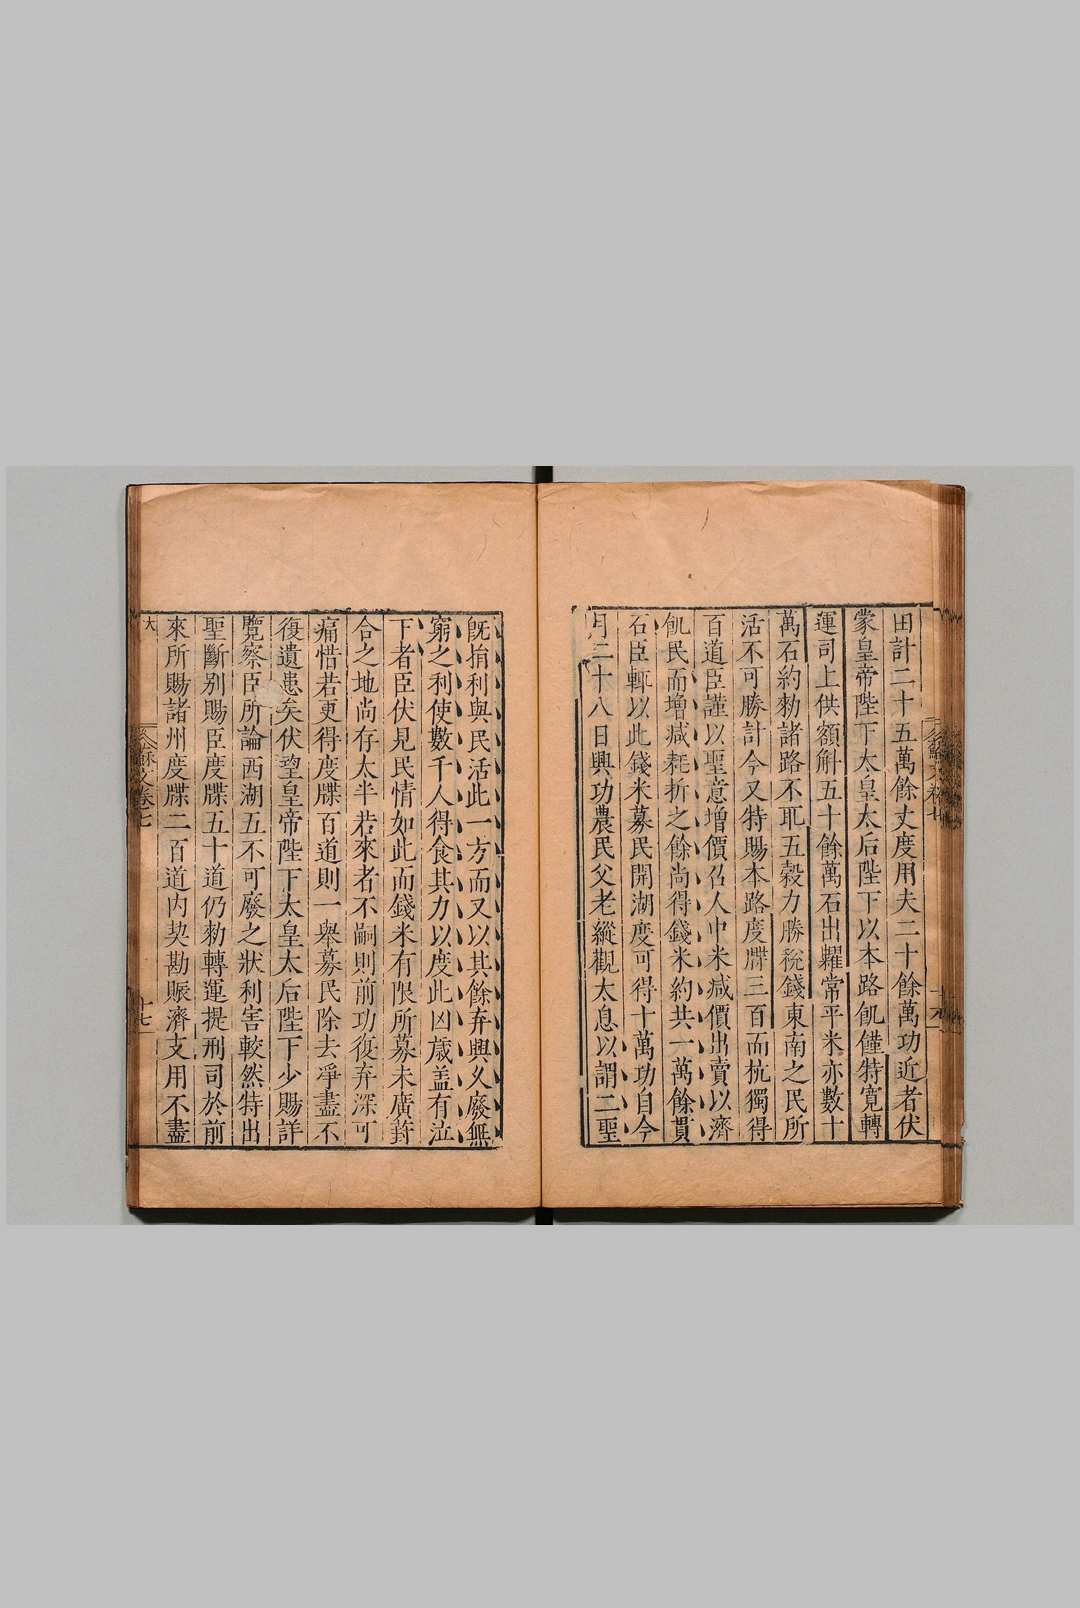 田計二十五萬餘丈度用夫二十餘萬功近者伏
蒙皇帝陛下太皇太后陛下以本路飢饉特寬轉
運司上供額斛五十餘萬石出糶常平米亦數十
萬石約勑諸路不取五穀力勝稅錢東南之民所
活不可勝計今又特賜本路度牒三百而杭獨得
百道臣謹以聖意增價召人中米减價出賣以濟
飢民而增减耗折之餘尚得錢米約共一萬餘貫
石臣輒以此錢米募民開湖度可得十萬功自今
月二十八日興功農民父老縱觀太息以謂二聖
旣捐利與民活此一方而又以其餘弃興久廢無
窮之利使數千人得食其力以度此凶歲盖有泣
下者臣伏見民情如此而錢米有限所募未廣葑
合之地尚存太半若來者不嗣則前功復弃深可
痛惜若更得度牒百道則一舉募民除去凈盡不
復遺患矣伏望皇帝陛下太皇太后陛下少賜詳
覽察臣所論西湖五不可廢之狀利害較然特出
聖斷别賜臣度牒五十道仍勑轉運提刑司於前
來所賜諸州度牒二百道内契勘賑濟支用不盡
蘇文卷七
十七